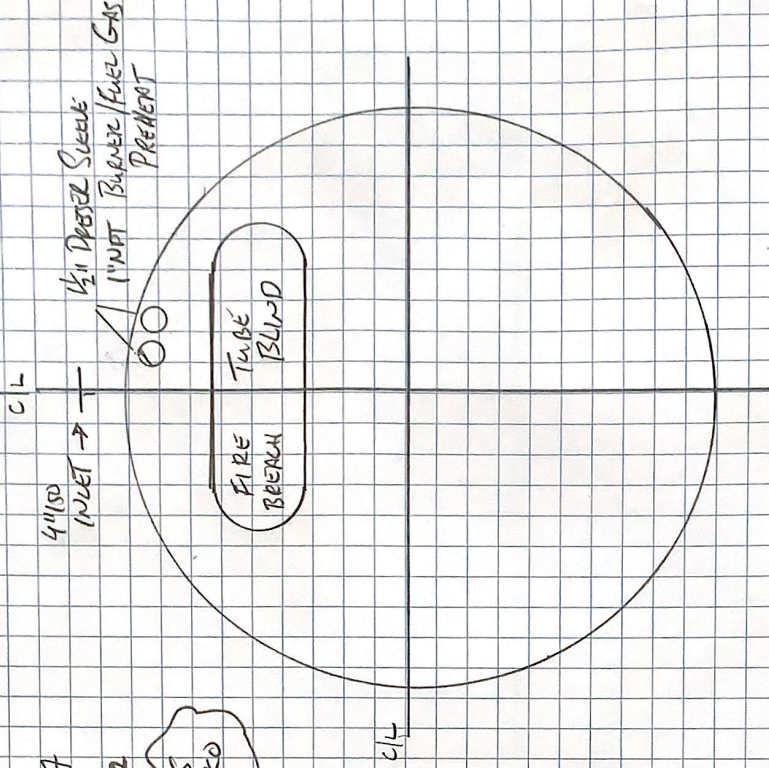 C/L
4"150
INLET →
1½" DRESSER SLEEVE
1" NPT BURNER/FUEL GAS
PREHEAT
FIRE TUBE
BREACH BLIND
C/L